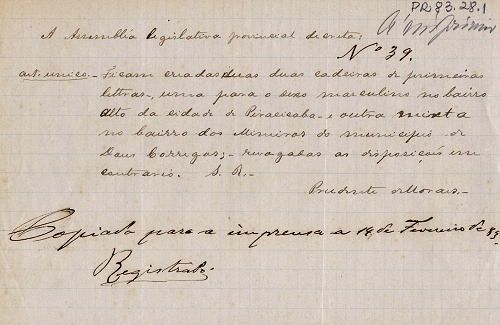 PR 83.28.1
A imprimir
A Assembléa legislativa provincial decreta:
Nº 39.
art. unico.- Ficam creadas duas cadeiras de primeiras
letras, uma para o sexo masculino no bairro
alto da cidade de Piracicaba e outra mixta
no bairro dos Mineiros do municipio de
Dous Corregos;- revogadas as disposições em
contrario. S. R.-
Prudente deMoraes.-
Copiado para a imprensa a 14 de Fevereiro de 83
Registrado.